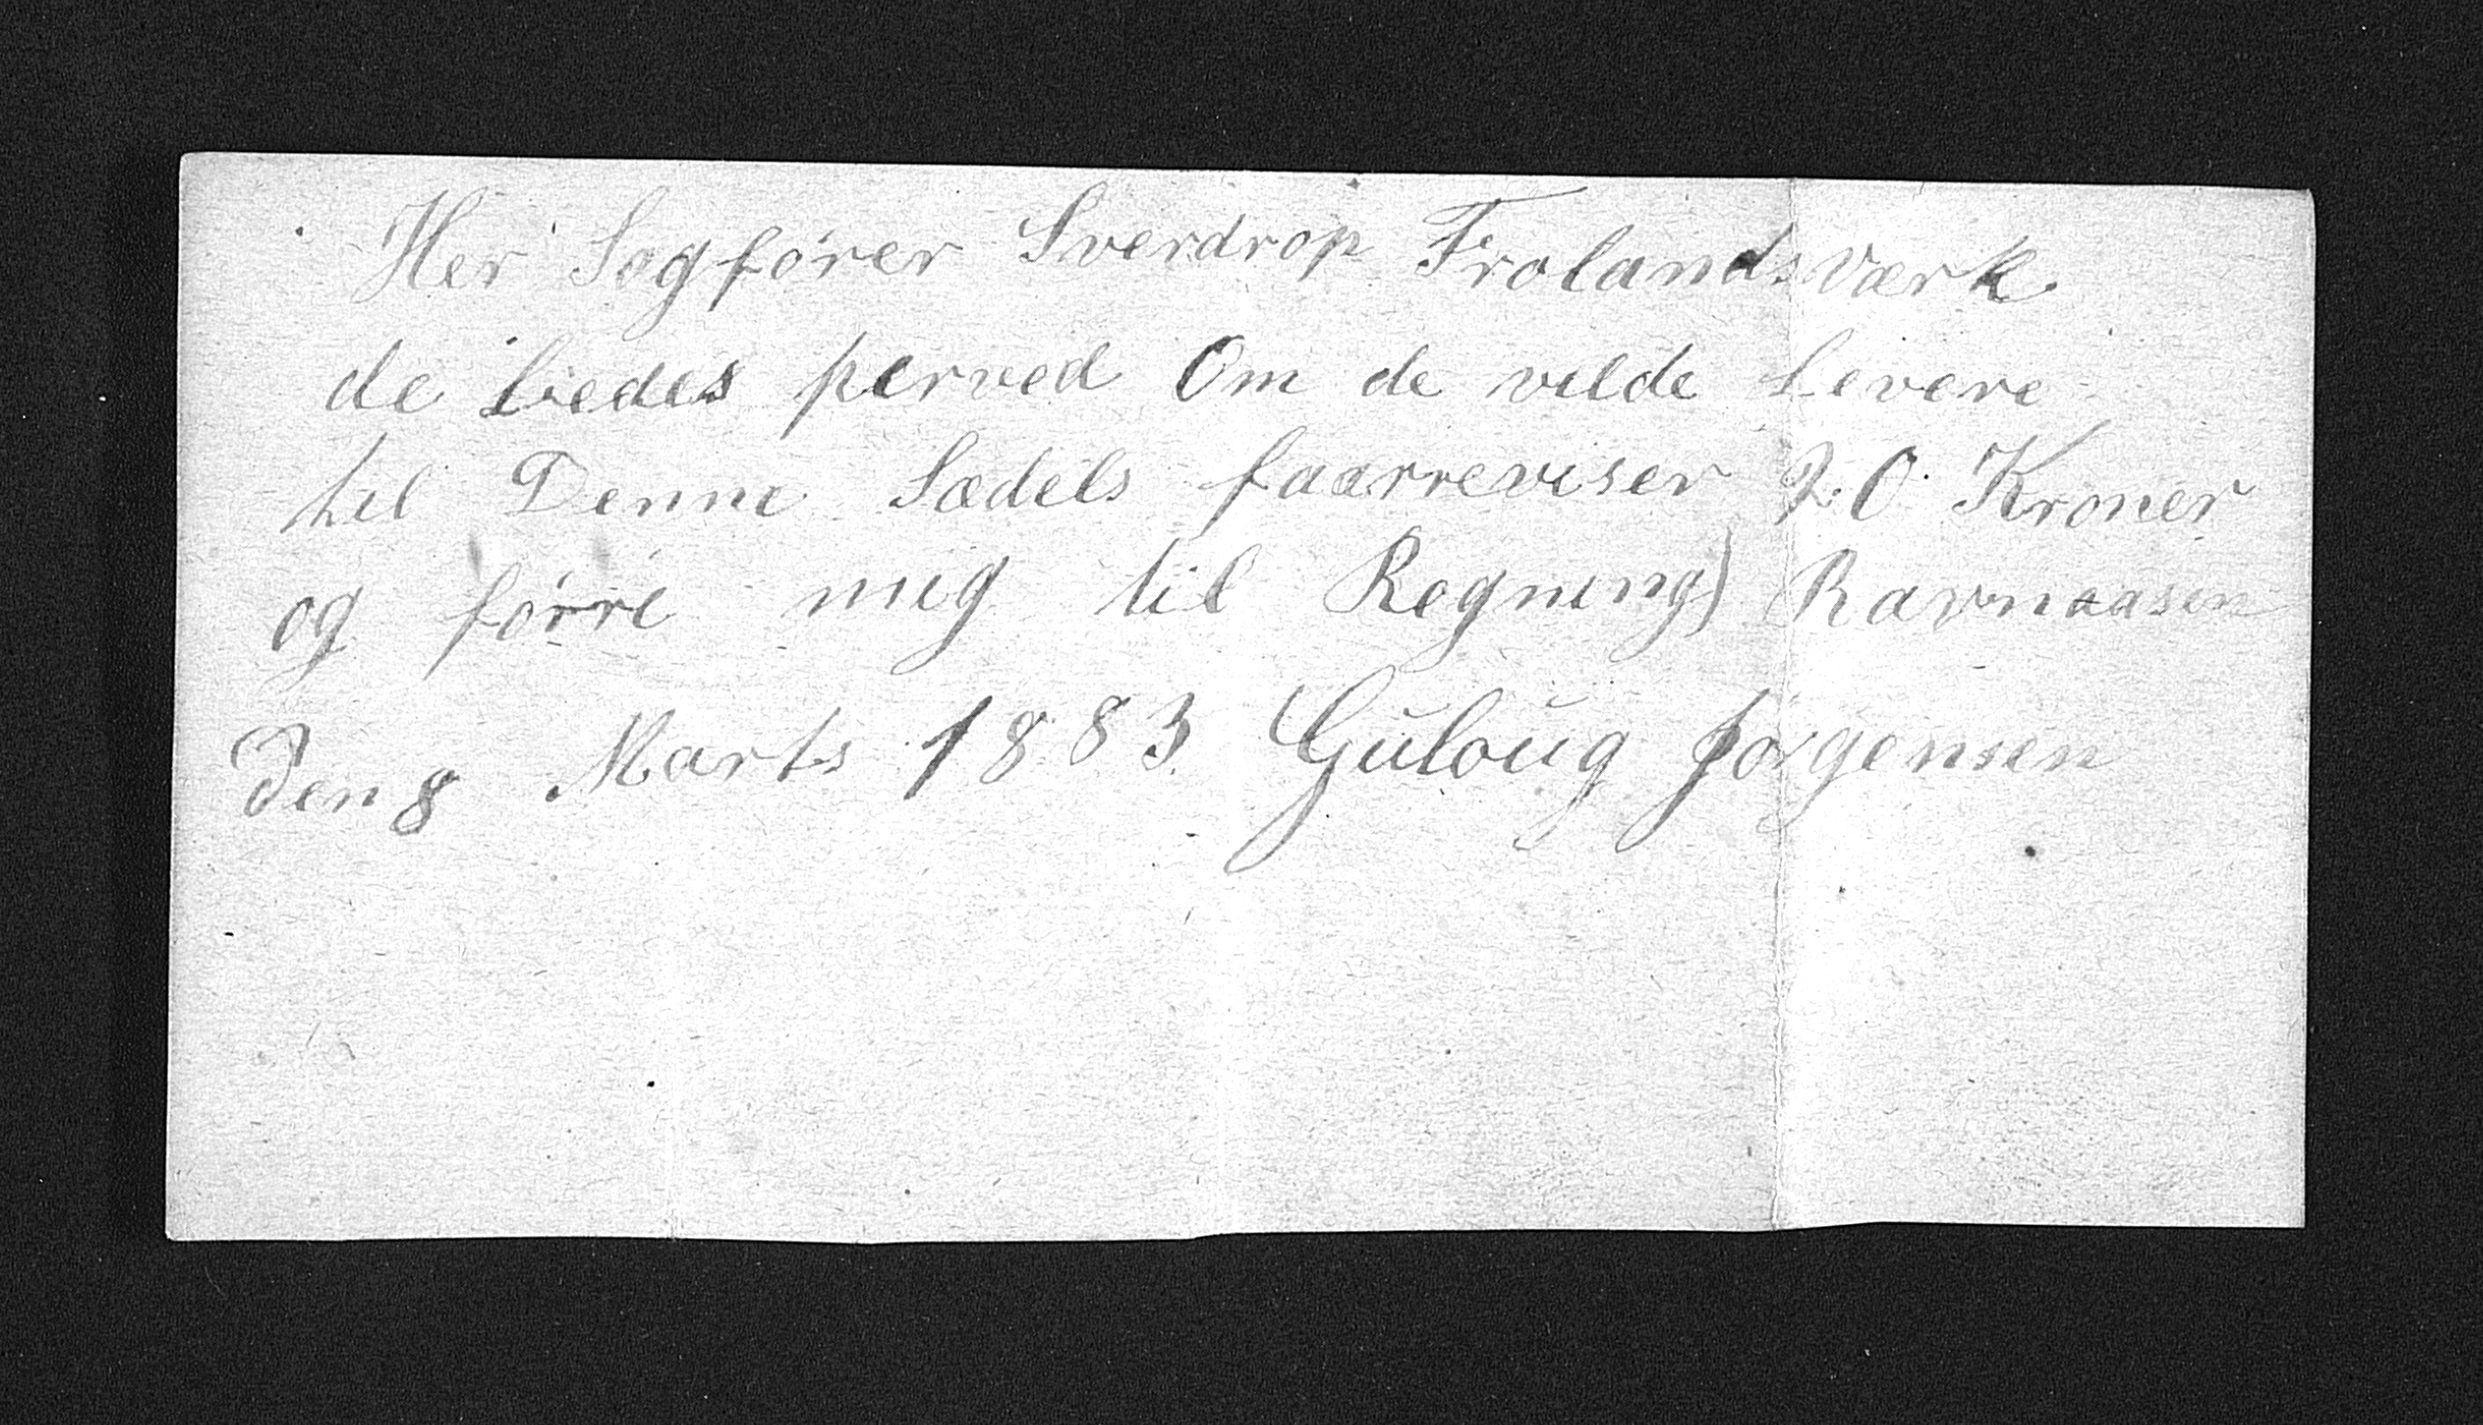 Her Sagfører Sverdrop Frolandsværk
de biedes herved Om de vilde Levere
til Denne Sædels faarreviser 20 Kroner
og førre mig til Regning) Ravnaasen
Den 8 Marts 1883 Guloug Jørgensen